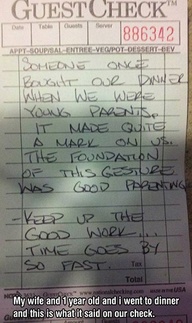 GUEST CHECK™
Date Table Guests Server
886342
APPT-SOUP/SAL-ENTREE-VEG/POT-DESSERT-BEV
SOMEONE ONCE
BOUGHT OUR DINNER
WHEN WE WERE
YOUNG PARENTS.
IT MADE QUITE
A MARK ON US.
THE FOUNDATION
OF THIS GESTURE
WAS GOOD PARENTING
-KEEP UP THE
GOOD WORK....
TIME GOES BY
SO FAST. Tax
Total
My wife and 1 year old and i went to dinner
and this is what it said on our check.